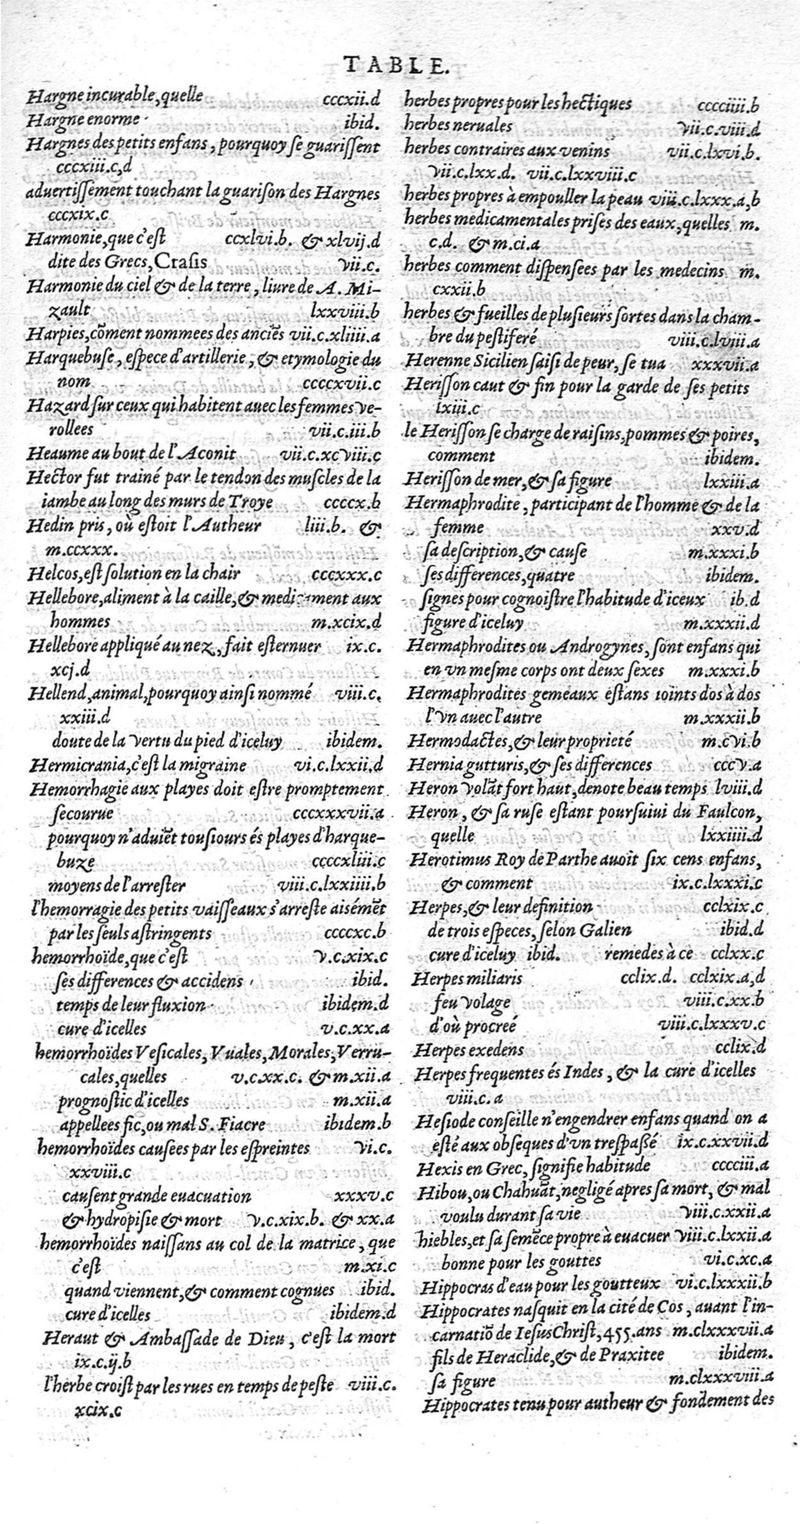 TABLE.
Hargne incurable, quelle cccxii.d
Hargne enorme ibid.
Hargnes des petits enfans, pourquoy se guarissent
cccxiii.c,d
aduertissement touchant la guarison des Hargnes
cccxix.c
Harmonie, que c'est ccxlvi.b. & xlvij.d
dite des Grecs, Crasis vii.c.
Harmonie du ciel & de la terre, liure de A. Mi-
zault lxxviii.b
Harpies, cõment nommees des anciẽs vii.c.xliiii.a
Harquebuse, espece d'artillerie, & etymologie du
nom ccccxvii.c
Hazard sur ceux qui habitent auec les femmes ve-
rollees vii.c.iii.b
Heaume au bout de l'Aconit vii.c.xcviii.c
Hector fut trainé par le tendon des muscles de la
iambe au long des murs de Troye ccccx.b
Hedin pris, où estoit l'Autheur liii.b. &
m.ccxxx.
Helcos, est solution en la chair cccxxx.c
Hellebore, aliment à la caille, & medicament aux
hommes m.xcix.d
Hellebore appliqué au nez, fait esternuer ix.c.
xcj.d
Hellend, animal, pourquoy ainsi nommé viii.c.
xxiii.d
doute de la vertu du pied d'iceluy ibidem.
Hermicrania, c'est la migraine vi.c.lxxii.d
Hemorrhagie aux playes doit estre promptement
secourue cccxxxvii.a
pourquoy n'aduiẽt tousiours és playes d'harque-
buze ccccxliii.c
moyens de l'arrester viii.c.lxxiiii.b
l'hemorragie des petits vaisseaux s'arreste aisémẽt
par les seuls astringents ccccxc.b
hemorrhoïde, que c'est v.c.xix.c
ses differences & accidens ibid.
temps de leur fluxion ibidem.d
cure d'icelles v.c.xx.a
hemorrhoïdes Vesicales, Vuales, Morales, Verru-
cales, quelles v.c.xx.c. & m.xii.a
prognostic d'icelles m.xii.a
appellees fic, ou mal S. Fiacre ibidem.b
hemorrhoïdes causées par les espreintes vi.c.
xxviii.c
causent grande euacuation xxxv.c
& hydropisie & mort v.c.xix.b. & xx.a
hemorrhoïdes naissans au col de la matrice, que
c'est m.xi.c
quand viennent, & comment cognues ibid.
cure d'icelles ibidem.d
Heraut & Ambassade de Dieu, c'est la mort
ix.c.ij.b
l'herbe croist par les rues en temps de peste viii.c.
xcix.c
herbes propres pour les hectiques cccciiii.b
herbes neruales vii.c.viii.d
herbes contraires aux venins vii.c.lxvi.b.
vii.c.lxx.d. vii.c.lxxviii.c
herbes propres à empouller la peau viii.c.lxxx.a,b
herbes medicamentales prises des eaux, quelles m.
c.d. & m.ci.a
herbes comment dispensees par les medecins m.
cxxii.b
herbes & fueilles de plusieurs sortes dans la cham-
bre du pestiferé viii.c.lviii.a
Herenne Sicilien saisi de peur, se tua xxxvii.a
Herisson caut & fin pour la garde de ses petits
lxiii.c
le Herisson se charge de raisins, pommes & poires,
comment ibidem.
Herisson de mer, & sa figure lxxiii.a
Hermaphrodite, participant de l'homme & de la
femme xxv.d
sa description, & cause m.xxxi.b
ses differences, quatre ibidem.
signes pour cognoistre l'habitude d'iceux ib.d
figure d'iceluy m.xxxii.d
Hermaphrodites ou Androgynes, sont enfans qui
en vn mesme corps ont deux sexes m.xxxi.b
Hermaphrodites gemeaux estans ioints dos à dos
l'vn auec l'autre m.xxxii.b
Hermodactes, & leur proprieté m.cvi.b
Hernia gutturis, & ses differences cccv.a
Heron volãt fort haut, denote beau temps lviii.d
Heron, & sa ruse estant poursuiui du Faulcon,
quelle lxxiiii.d
Herotimus Roy de Parthe auoit six cens enfans,
& comment ix.c.lxxxi.c
Herpes, & leur definition cclxix.c
de trois especes, selon Galien ibid.d
cure d'iceluy ibid. remedes à ce cclxx.c
Herpes miliaris cclix.d. cclxix.a,d
feu volage viii.c.xx.b
d'où procreé viii.c.lxxxv.c
Herpes exedens cclix.d
Herpes frequentes és Indes, & la cure d'icelles
viii.c.a
Hesiode conseille n'engendrer enfans quand on a
esté aux obseques d'vn trespaßé ix.c.xxvii.d
Hexis en Grec, signifie habitude cccciii.a
Hibou, ou Chahuãt, negligé apres sa mort, & mal
voulu durant sa vie viii.c.xxii.a
hiebles, et sa semẽce propre à euacuer viii.c.lxxii.a
bonne pour les gouttes vi.c.xc.a
Hippocras d'eau pour les goutteux vi.c.lxxxii.b
Hippocrates nasquit en la cité de Cos, auant l'in-
carnatiõ de Iesus Christ, 455. ans m.clxxxvii.a
fils de Heraclide, & de Praxitee ibidem.
sa figure m.clxxxviii.a
Hippocrates tenu pour autheur & fondement des